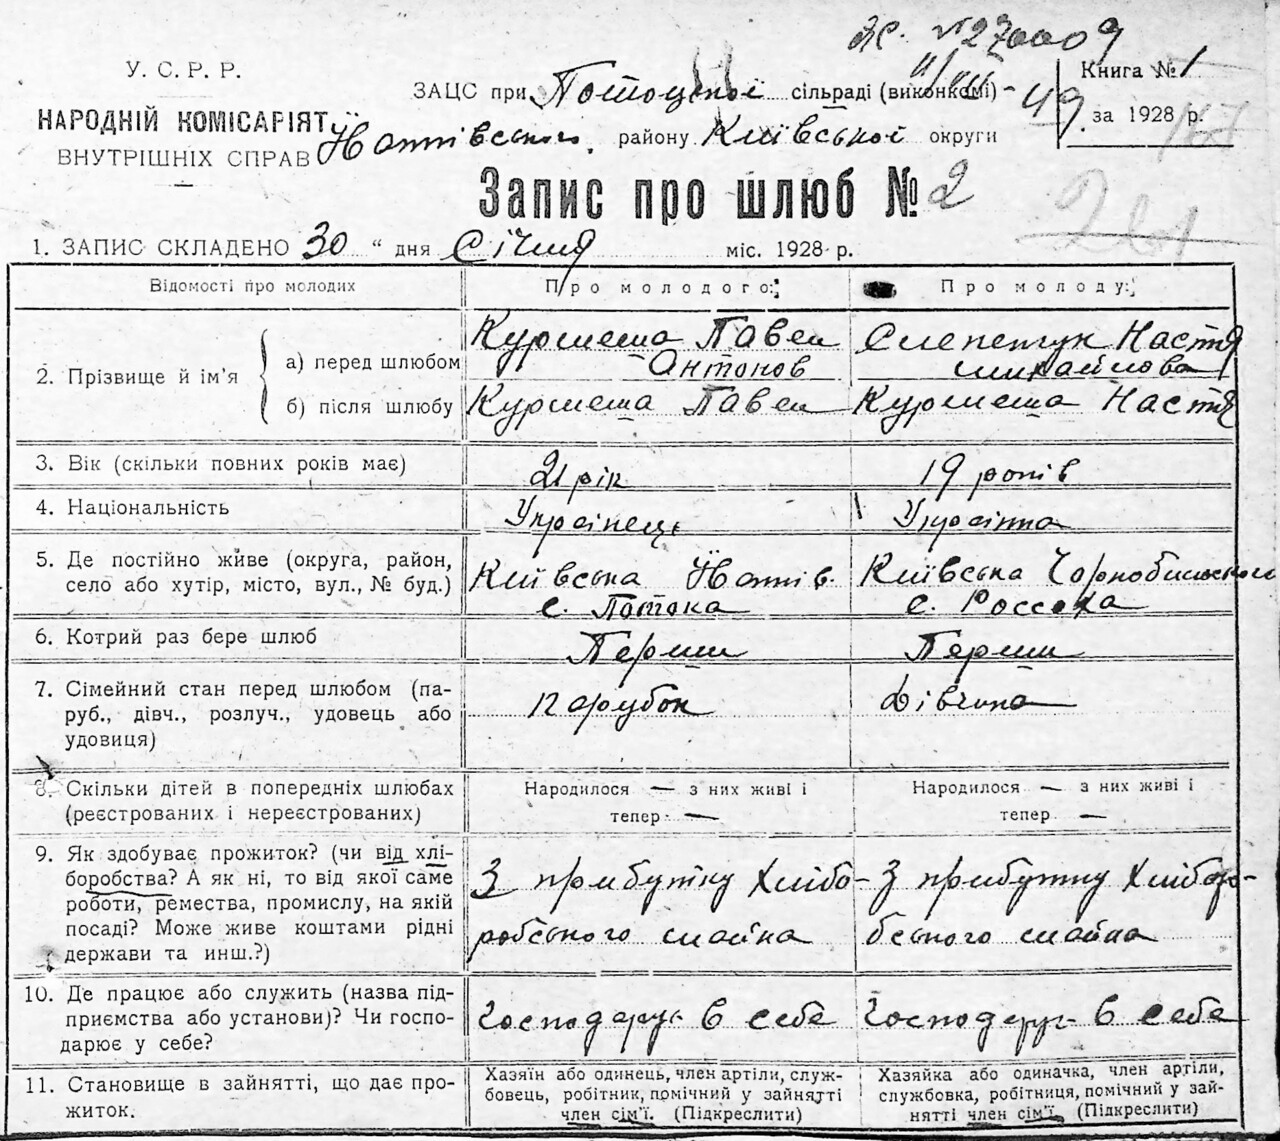 У. С. Р. Р.
НАРОДНІЙ КОМІСАРІЯТ
ВНУТРІШНІХ СПРАВ
ЗС. №270009
ЗАЦС при Потоцької сільраді (виконкомі)
району Київської округи
Книга № 1
за 1928 р.
Запис про шлюб № 2
261
1. ЗАПИС СКЛАДЕНО 30 " дня Січня міс. 1928 р.
Відомості про молодих
Про молодого:
Про молоду:
2. Прізвище й ім'я
а) перед шлюбом
Курмеша Павел
Антонов
Настя
михайлова
б) після шлюбу
Курмеша Павел
Курмеша Настя
3. Вік (скільки повних років має)
21 рік
19 років
4. Національність
Українець
Українка
5. Де постійно живе (округа, район,
село або хутір, місто, вул., № буд.)
Київська
с. Потока
Київська Чорнобильського
с. Россоха
6. Котрий раз бере шлюб
Перши
Перши
7. Сімейний стан перед шлюбом (па-
руб., дівч., розлуч., удовець або
удовиця)
парубок
дівчина
8. Скільки дітей в попередніх шлюбах
(реєстрованих і нереєстрованих)
Народилося — з них живі і
тепер —
Народилося — з них живі і
тепер —
9. Як здобуває прожиток? (чи від хлі-
боробства? А як ні, то від якої саме
роботи, ремества, промислу, на якій
посаді? Може живе коштами рідні
держави та инш.?)
З прибутку хлібо-
робського майна
З прибутку хліборо-
бського майна
10. Де працює або служить (назва під-
приємства або установи)? Чи госпо-
дарює у себе?
Господарує в себе
Господарує в себе
11. Становище в зайнятті, що дає про-
житок.
Хазяїн або одинець, член артіли, служ-
бовець, робітник, помічний у зайнятті
член сім'ї. (Підкреслити)
Хазяйка або одиначка, член артіли,
службовка, робітниця, помічний у зай-
нятті член сім'ї. (Підкреслити)